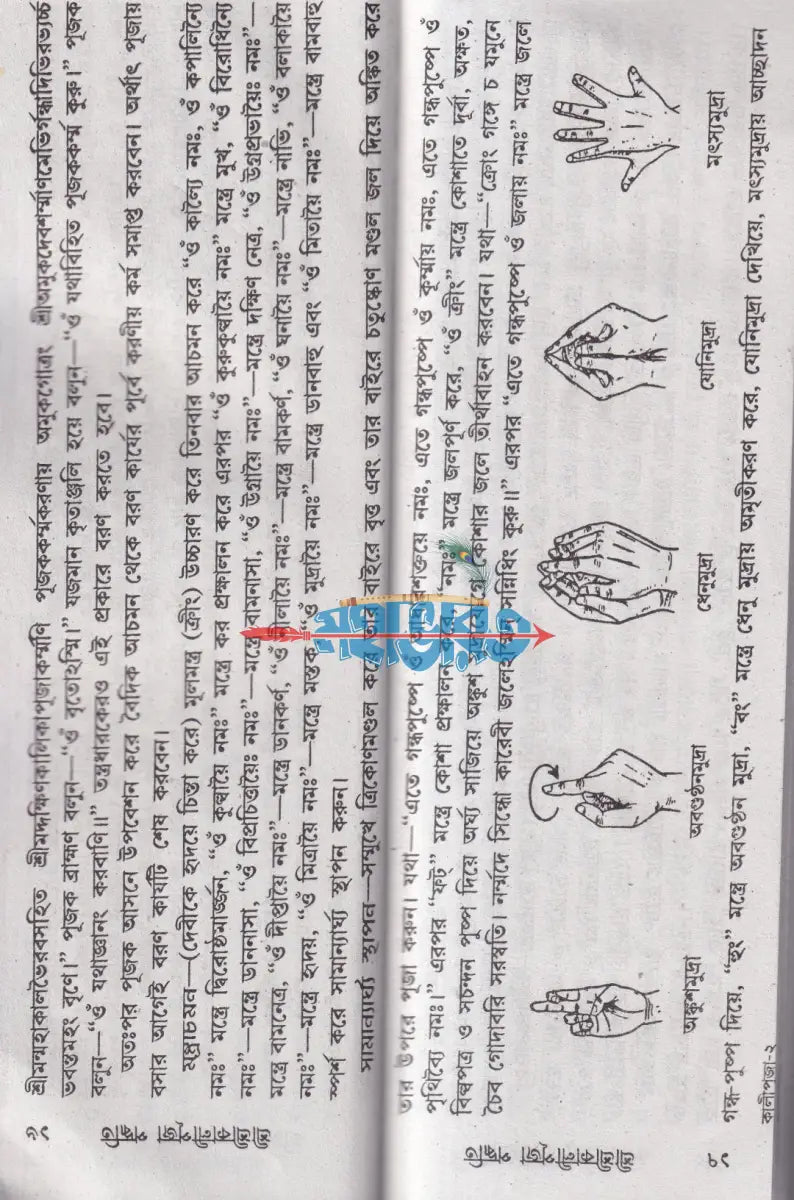 ১৬
শ্রীশ্রীকালীপূজা পদ্ধতি
শ্রীমন্মহাকালভৈরবসহিত শ্রীমদ্দক্ষিণকালিকাপূজাকর্ম্মণি পূজককর্ম্মকরণায় অমুকগোত্রং শ্রীঅমুকদেবশর্ম্মাণমেভির্গন্ধাদিভিরভ্যর্চ্চ্য
ভবন্তমহং বৃণে।” পূজক ব্রাহ্মণ বলুন—“ওঁ বৃতোঽস্মি।” যজমান কৃতাঞ্জলি হয়ে বলুন—“ওঁ যথাবিহিত পূজককর্ম্ম কুরু।” পূজক
বলুন—“ওঁ যথাজ্ঞানং করবাণি॥” তন্ত্রধারকেরও এই প্রকারে বরণ করতে হবে।
অতঃপর পূজক আসনে উপবেশন করে বৈদিক আচমন থেকে বরণ কার্যের পূর্বে করণীয় কর্ম সমাপ্ত করবেন। অর্থাৎ পূজায়
বসার আগেই বরণ কার্যটি শেষ করবেন।
মন্ত্রাচমন—(দেবীকে হৃদয়ে চিন্তা করে) মূলমন্ত্র (ক্রীং) উচ্চারণ করে তিনবার আচমন করে “ওঁ কাল্যৈ নমঃ, ওঁ কপালিন্যৈ
নমঃ” মন্ত্রে দ্বিরোষ্ঠমার্জ্জন, “ওঁ কুল্বায়ৈ নমঃ” মন্ত্রে কর প্রক্ষালন করে এরপর “ওঁ কুরুকুল্বায়ৈ নমঃ” মন্ত্রে মুখ, “ওঁ বিরোধিন্যৈ
নমঃ”—মন্ত্রে ডাননাসা, “ওঁ বিপ্রচিত্তায়ৈঃ নমঃ”—মন্ত্রে বামনাসা, “ওঁ উগ্রায়ৈ নমঃ”—মন্ত্রে দক্ষিণ নেত্র, “ওঁ উগ্রপ্রভায়ৈঃ নমঃ”—
মন্ত্রে বামনেত্র, “ওঁ দীপ্তায়ৈ নমঃ”—মন্ত্রে ডানকর্ণ, “ওঁ নীলায়ৈ নমঃ”—মন্ত্রে বামকর্ণ, “ওঁ ঘনায়ৈ নমঃ”—মন্ত্রে নাভি, “ওঁ বলাকায়ৈ
নমঃ”—মন্ত্রে হৃদয়, “ওঁ মিত্রায়ৈ নমঃ”—মন্ত্রে মস্তক, “ওঁ মুদ্রায়ৈ নমঃ”—মন্ত্রে ডানবাহু এবং “ওঁ মিতায়ৈ নমঃ”—মন্ত্রে বামবাহু
স্পর্শ করে সামান্যার্ঘ্য স্থাপন করুন।
সামান্যার্ঘ্য স্থাপন—সম্মুখে ত্রিকোণমণ্ডল করে তার বাইরে বৃত্ত এবং তার বাইরে চতুষ্কোণ মণ্ডল জল দিয়ে অঙ্কিত করে
মহাভারত
১৭
শ্রীশ্রীকালীপূজা পদ্ধতি
তার উপরে পূজা করুন। যথা—“এতে গন্ধপুষ্পে ওঁ আধারশক্তয়ে নমঃ, এতে গন্ধপুষ্পে ওঁ কূর্ম্মায় নমঃ, এতে গন্ধপুষ্পে ওঁ
পৃথিব্যৈ নমঃ।” এরপর “ফট্” মন্ত্রে কোশা প্রক্ষালন করে, “নমঃ” মন্ত্রে জলপূর্ণ করে, “ওঁ ক্রীং” মন্ত্রে কোশাতে দূর্বা, অক্ষত,
বিল্বপত্র ও সচন্দন পুষ্প দিয়ে অর্ঘ্য সাজিয়ে অঙ্কুশ মুদ্রাযোগে কোশার জলে তীর্থাবাহন করবেন। যথা—“ক্রোং গঙ্গে চ যমুনে
চৈব গোদাবরি সরস্বতি। নর্ম্মদে সিন্ধো কাবেরী জলেঽস্মিন্ সন্নিধিং কুরু॥” এরপর “এতে গন্ধপুষ্পে ওঁ জলায় নমঃ” মন্ত্রে জলে
অঙ্কুশমুদ্রা
অবগুণ্ঠনমুদ্রা
ধেনুমুদ্রা
যোনিমুদ্রা
মৎস্যমুদ্রা
গন্ধ-পুষ্প দিয়ে, “হুং” মন্ত্রে অবগুণ্ঠন মুদ্রা, “বং” মন্ত্রে ধেনু মুদ্রায় অমৃতীকরণ করে, যোনিমুদ্রা দেখিয়ে, মৎস্যমুদ্রায় আচ্ছাদন
কালীপূজা-২